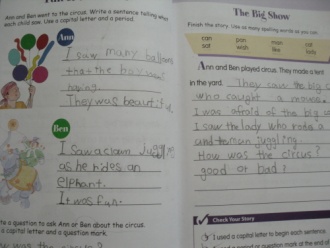 Ann and Ben went to the circus. Write a sentence telling what
each child saw. Use a capital letter and a period.
Ann
I saw many
that the
They was
Ben
I saw a clown
as he rides an
elphant.
It was fun.
te a question to ask Ann or Ben about the circus.
a capital letter and a question mark.
was the circus?
The Big Show
Finish the story. Use as many spelling words as you can.
can
pan
man
cat
sat
wish
like
Ann and Ben played circus. They made a tent
in the yard. They saw the big c
who caught a
I was afraid of the big
I saw the lady who
man juggling.
How was the circus?
good or bad?
Check Your Story
I used a capital letter to begin each sentence.